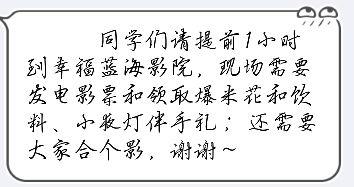 同学们请提前1小时
到幸福蓝海影院，现场需要
发电影票和领取爆米花和饮
料、小夜灯伴手礼；还需要
大家合个影，谢谢~